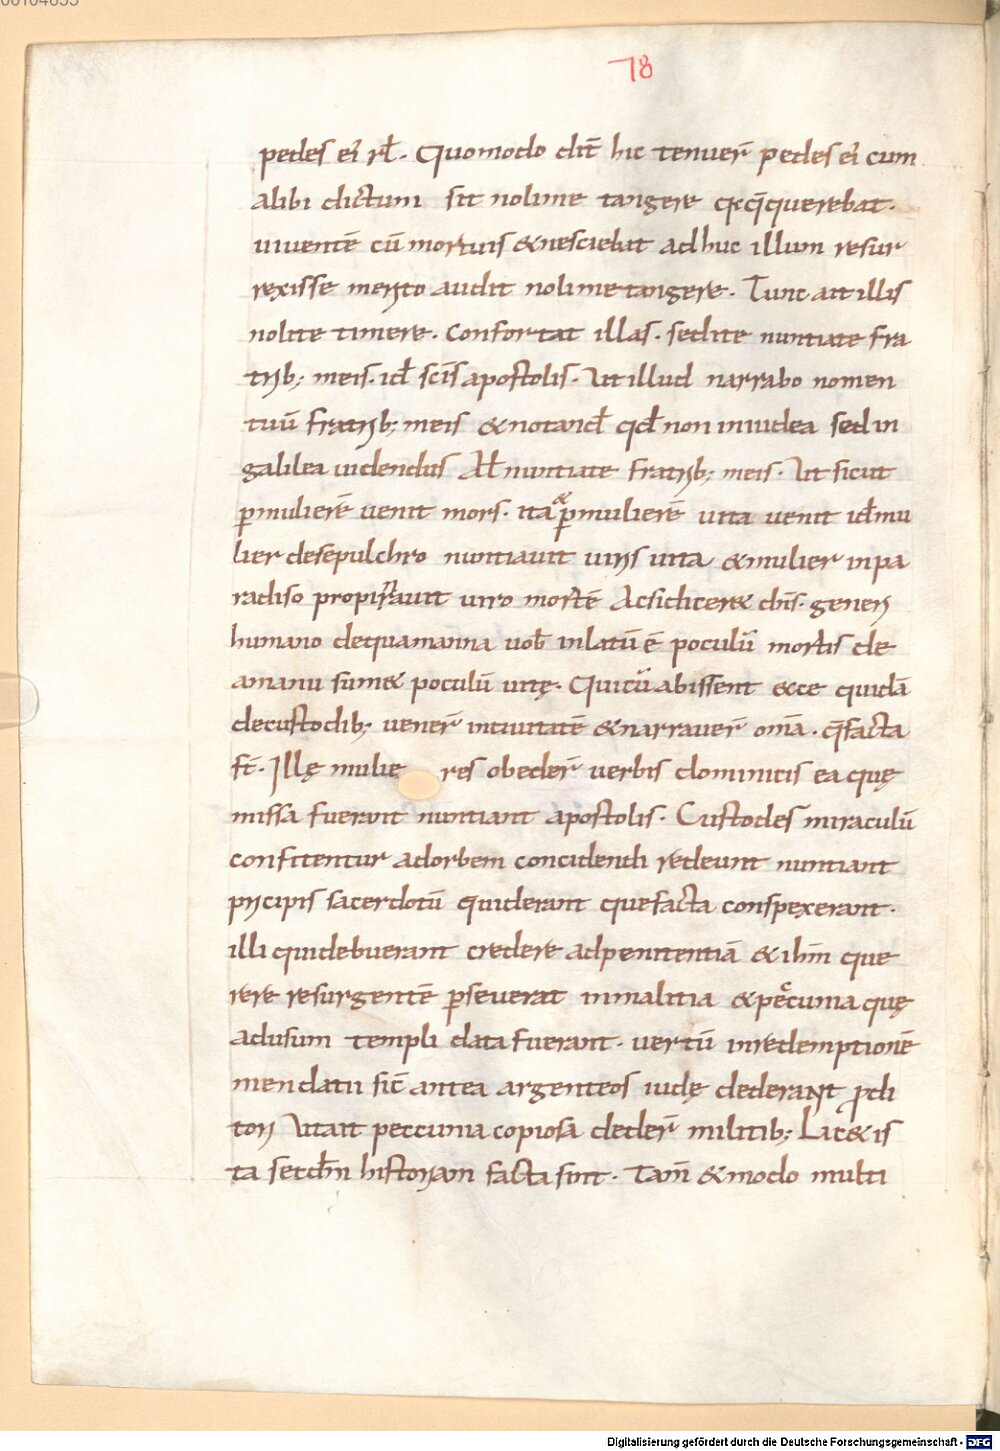 00104633
78
pedes ei᷒ rł. Quomodo dic̄ hic tenuer̄ pedes ei᷒ cum
alibi dictum sit noli me tangere q̇ q̄querebat.
uiuentē cū mortuis & nesciebat adhuc illum resur
rexisse merito audit noli me tangere. Tunc ait illis
nolite timere. Confortat illas. sed ite nuntiate fra
trib; meis. id̄ sc̄is apostolis. Ut illud narrabo nomen
tuū fratrib; meis & notand̄ qd̄ non in iudea sed in
galilea uidendus Ał nuntiate fratrib; meis. Ut sicut
ꝑ mulierē uenit mors. ita & ꝑ mulierē uita uenit id̄ mu
lier de sepulchro nuntiauit uiris uita & mulier in pa
radiso propinauit uiro mortē Ac si dicer& dn̄s. generi
humano de qua manna uob̄ inlatū ē poculū mortis de
a manu sum& poculū uitę. Qui cū abissent ecce quidā
de custodib; uener̄ in ciuitatē & narrauer̄ om̄a. q̄ facta
st̄. Illę mulie res obeder̄ uerbis dominicis ea quę
missa fuerant nuntiant apostolis. Custodes miraculū
confitentur ad orbem concidendi redeunt nuntiant
pricipis sacerdotū quiderant que facta conspexerant.
illi qui debuerant credere ad penitentiā & ihm̄ que
rere resurgentē ꝑseuerat in malitia & peccunia quę
ad usum templi data fuerant. uertū in redemptionē
mendatii sic̄ antea argenteos iudę dederant ꝓdi
tori Ut ait peccunia copiosa deder̄ militib; Lic& is
ta secdm̄ historiam facta sint. Tam̄ & modo multi
Digitalisierung gefördert durch die Deutsche Forschungsgemeinschaft - DFG